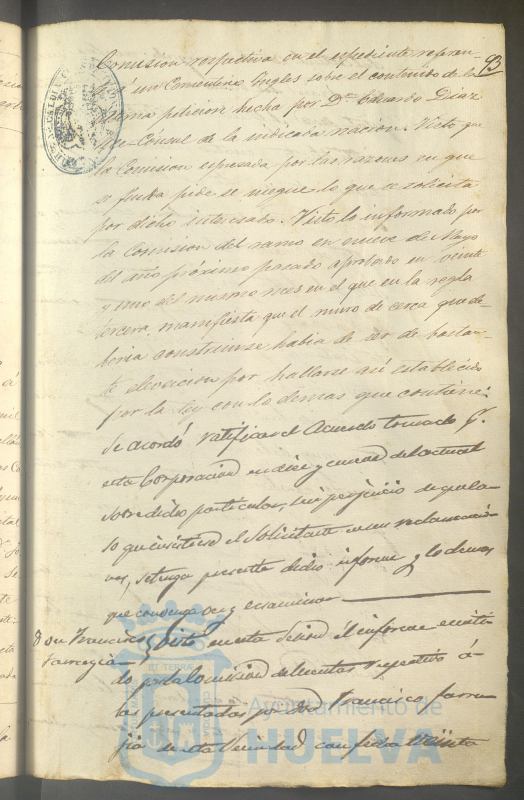 93
Comision respectiva en el espediente referen-
á un Cementerio Ingles sobre el contenido de la
misma peticion hecha por Dn. Eduardo Diaz
Vice-Cónsul de la indicada nacion. Visto que
la Comision espresada por las razones en que
se funda pide se niegue lo que se solicita
por dicho interesado. Visto lo informado por
la Comision del ramo en nueve de Mayo
del año próximo pasado aprobado en veinte
y uno del mismo mes en el que en la regla
tercera manifiesta que el muro de cerca que de-
beria construirse habia de ser de bastan-
te elevacion por hallarse asi establecido
por la ley con lo demas que contiene:
Se acordó ratificar el Acuerdo tomado p.
esta Corporacion en diez y nueve del actual
sobre dicho particular, sin perjuicio de que ca-
so que insistiese el Solicitante en sus reclamacio-
nes, se tenga presente dicho informe y lo demas
que convenga ver y ecsaminar
Don Francisco
Farrugia
Visto en esta Sesion el informe emiti-
do por la Comision de Cuentas respectivo á
las presentadas por Don Francisco Farru-
gia de esta Vecindad con fecha veinte
Ayuntamiento de
HUELVA